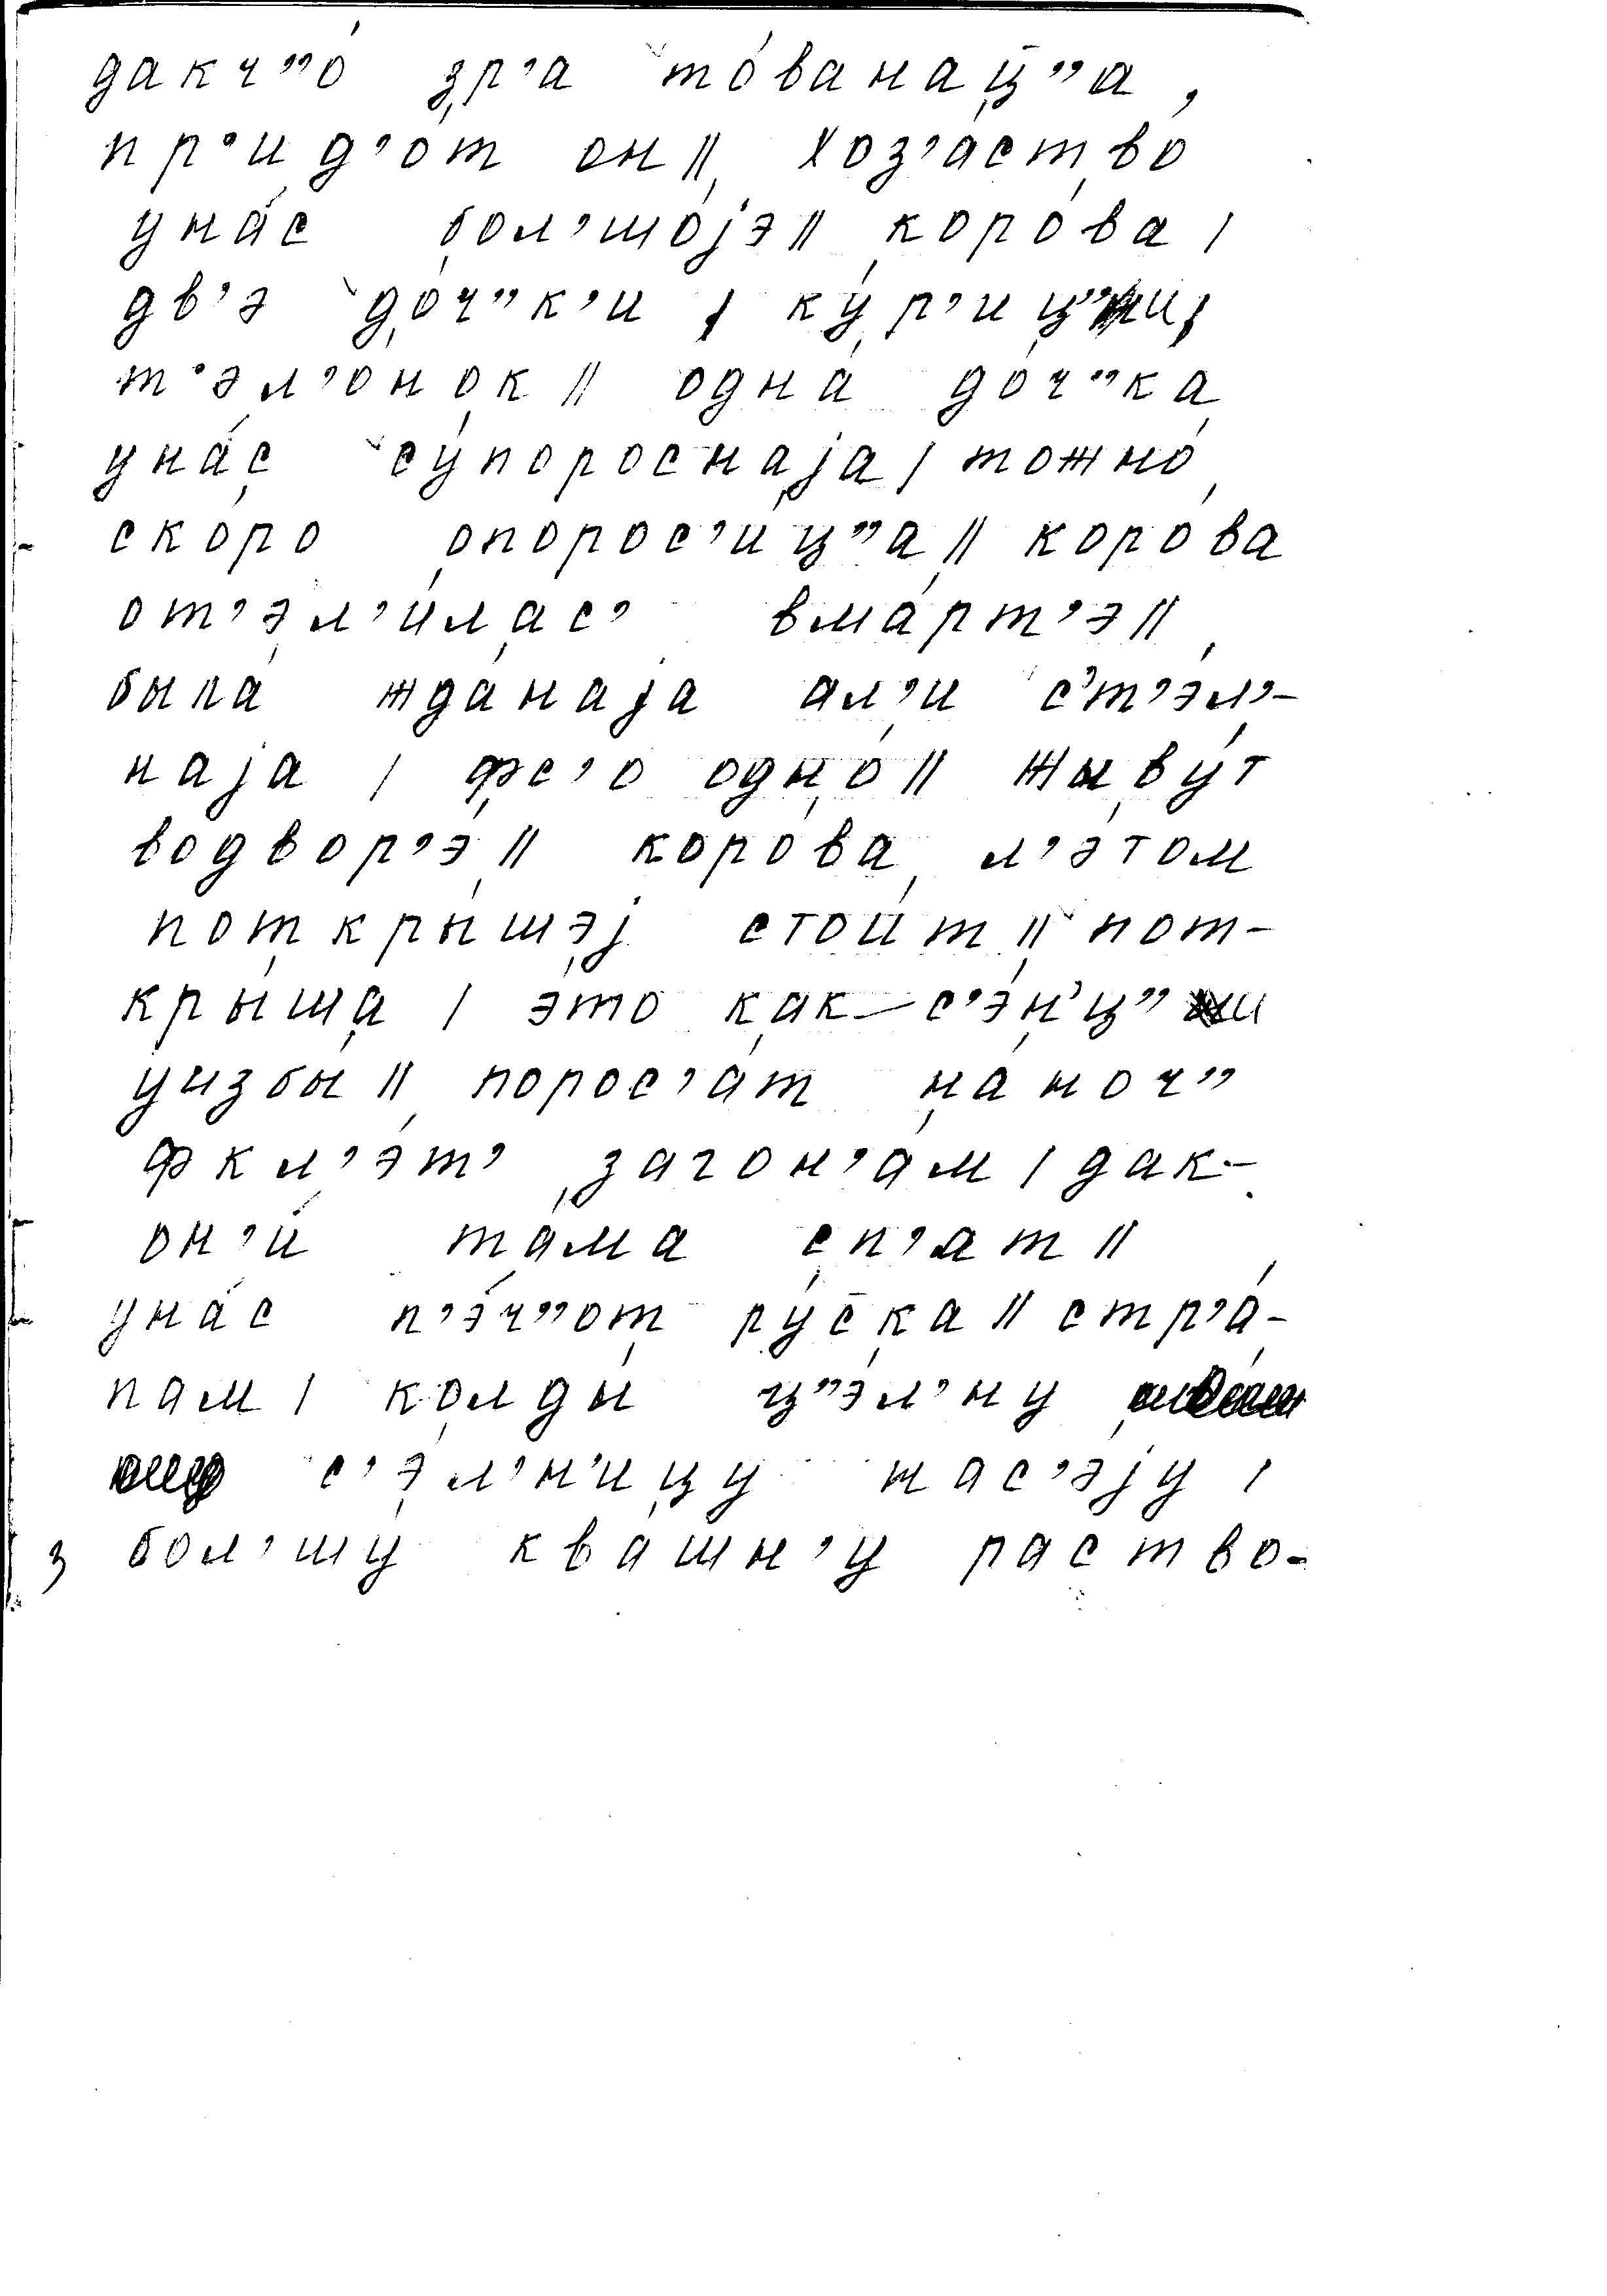 дакч’’о́ зр’а то́ванац’’а,
пр’ид’от он || хоз’а́ство
уна́с бол’шо́jэ || коро́ва |
дв’э до́ч’’к’и | ку́р’иц’’и |
т’эл’онок || одна́ до́ч’’ка
уна́с су́пороснаjа | тожно́
ско́ро опорос’и́ц’’а || коро́ва
от’эл’и́лас’ вма́рт’э ||
была́ жда́наjа ал’и с’т’э́л’-
наjа | фс’о одно́ || жыву́т
водвор’э́ || коро́ва л’э́том
поткры́шэj стои́т || пот-
кры́ша | э́то как–с’э́н’ц’’и
уизбы́ || порос’а́т на́ноч’’
фкл’эт’ загон’а́м | дак-
он’и́ та́ма сп’ат ||
уна́с п’э́ч’’от ру́ска || стр’а́-
пам | колды́ ц’’э́л’ну
с’э́л’н’ицу нас’э́jу |
бол’шу́ квашн’у́ раство-
з